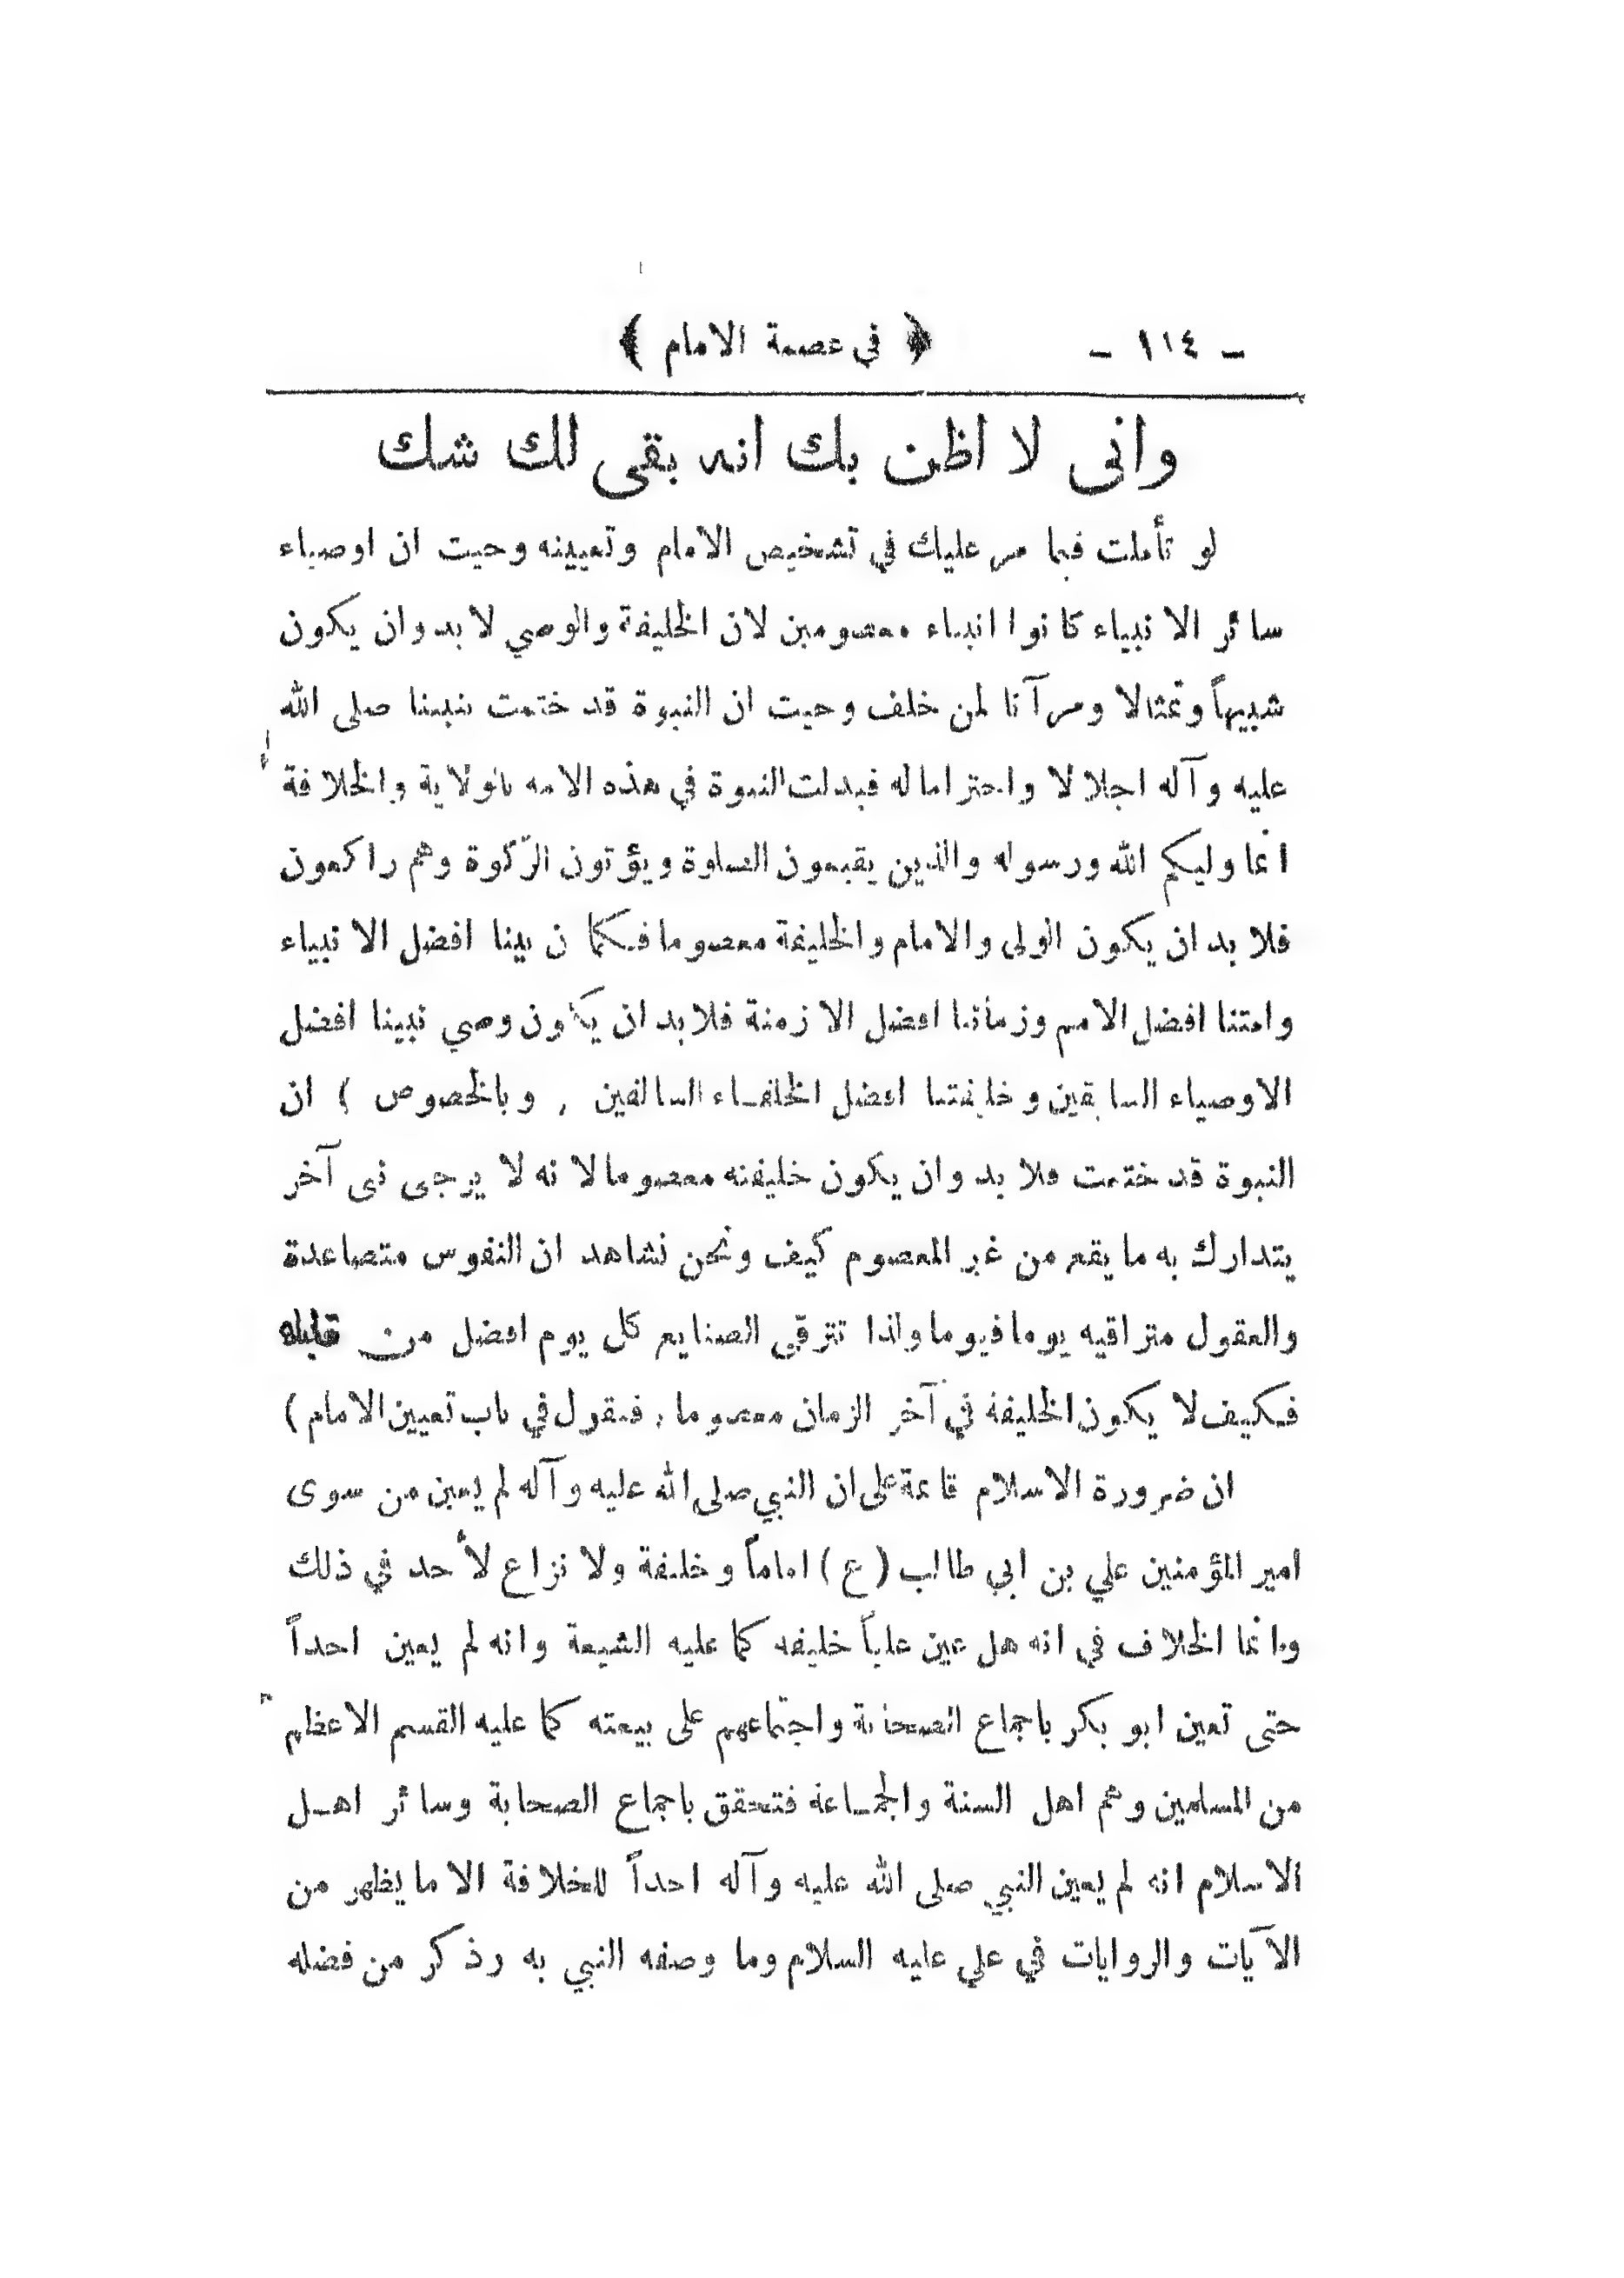 - ١١٤ - ﴿ في عصمة الامام ﴾
واني لا اظن بك انه بقى لك شك
لو تأملت فيما مر عليك في تشخيص الامام وتعيينه وحيت ان اوصياء
سائر الانبياء كانوا انبياء معصومين لان الخليفة والوصي لا بد وان يكون
شبيهاً وتمثالا ومرآنا لمن خلف وحيت ان النبوة قد ختمت بنبينا صلى الله
عليه وآله اجلالا واحتراما له فبدلت النبوة في هذه الامه بالولاية والخلافة
انما وليكم الله ورسوله والذين يقيمون الصلوة ويؤتون الزكوة وهم راكعون
فلا بد ان يكون الولي والامام والخليفة معصوما فكما ن نبينا افضل الانبياء
وامتنا افضل الامم وزماننا افضل الازمنة فلا بد ان يكون وصي نبينا افضل
الاوصياء السابقين وخليفتنا افضل الخلفاء السالفين . وبالخصوص ) ان
النبوة قد ختمت فلا بد وان يكون خليفته معصوما لانه لا يرجى نبى آخر
يتدارك به ما يقع من غير المعصوم كيف ونحن نشاهد ان النفوس متصاعدة
والعقول متراقيه يوما فيوما واذا تترقى الصنايع كل يوم افضل من قبله
فكيف لا يكون الخليفة في آخر الزمان معصوما . فنقول في باب تعيين الامام )
ان ضرورة الاسلام قائمة على ان النبي صلى الله عليه وآله لم يعين من سوى
امير المؤمنين علي بن ابي طالب ( ع ) اماماً وخليفة ولا نزاع لأحد في ذلك
وانما الخلاف في انه هل عين علياً خليفه كما عليه الشيعة وانه لم يعين احداً
حتى تعين ابو بكر باجماع الصحابة واجتماعهم على بيعته كما عليه القسم الاعظم
من المسلمين وهم اهل السنة والجماعة فتحقق باجماع الصحابة وسائر اهل
الاسلام انه لم يعين النبي صلى الله عليه وآله احداً للخلافة الا ما يظهر من
الآيات والروايات في علي عليه السلام وما وصفه النبي به رذكر من فضله